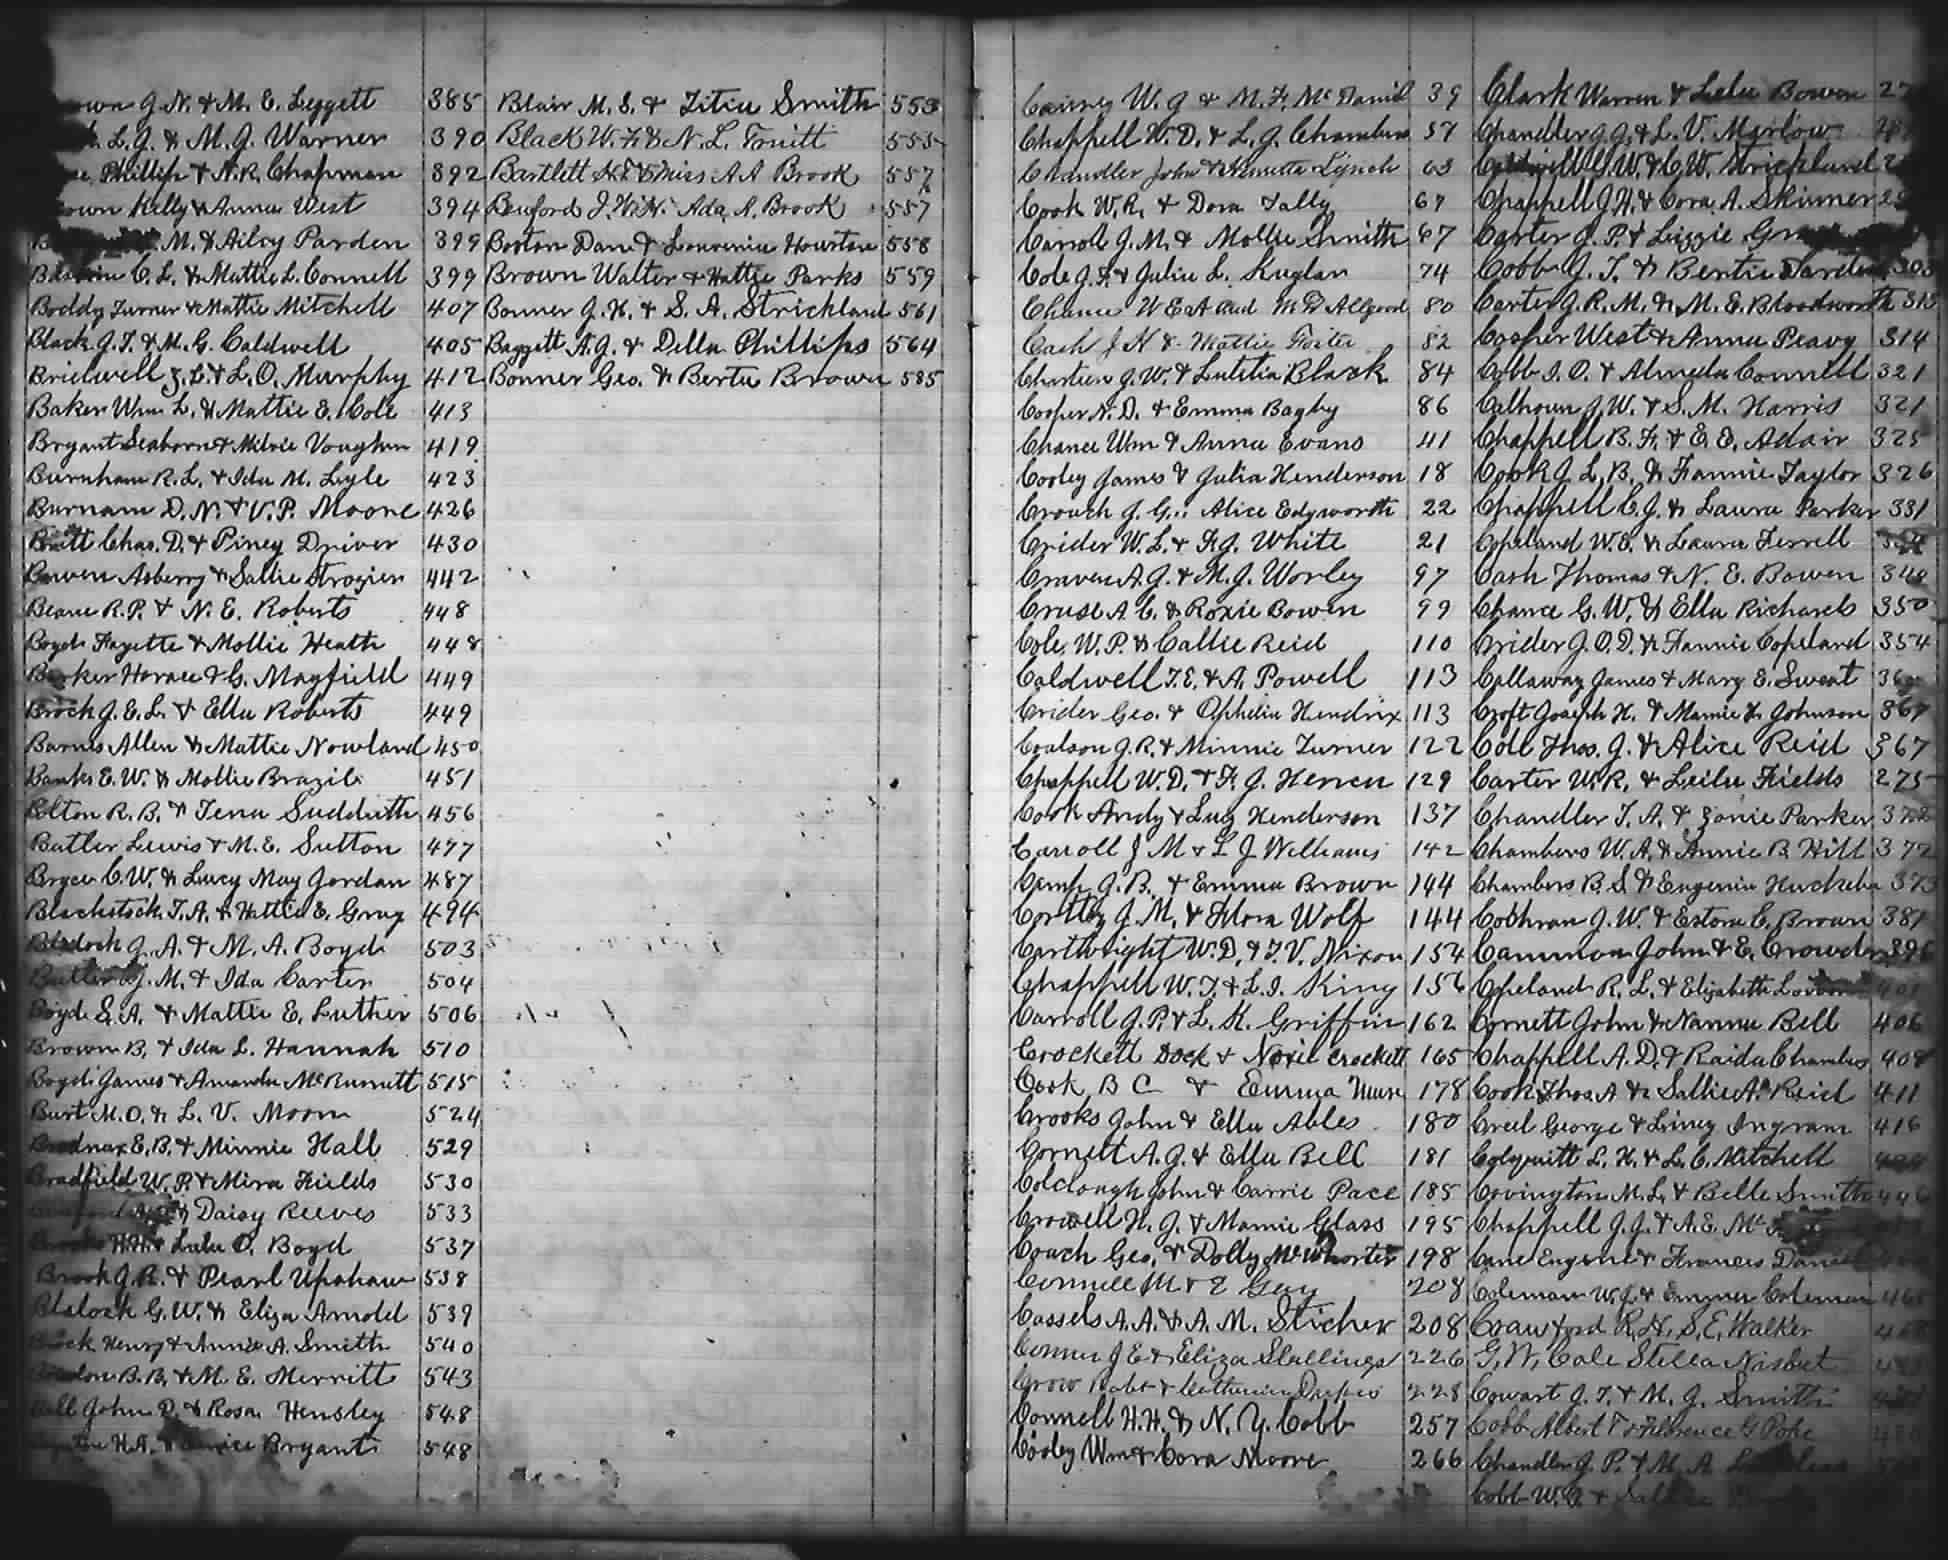 J. N. & M. E. Leggett 385
L. J. & M. J. Warner 390
Phillip & N. R. Chapman 392
Kelly & Anna West 394
M. & Ailcy Parden 399
C. L. & Mattie L. Connell 399
Boddy Turner & Mattie Mitchell 407
Black J. T. & M. G. Caldwell 405
Bridwell J. L. & L. O. Murphy 412
Baker Wm L. & Mattie E. Cole 413
Bryant Seaborn & Milvie Vaughn 419
Burnham R. L. & Ida M. Lyle 423
Burnam D. N. & V. P. Moore 426
Britt Chas. D. & Piney Driver 430
Bowen Asberry & Sallie Strozier 442
Beane R. P. & N. E. Roberts 448
Boyd Fayette & Mollie Heath 448
Barker Horace & G. Mayfield 449
Brock J. E. L. & Ella Roberts 449
Barnes Allen & Mattie Nowland 450
Banks E. W. & Mollie Brazil 451
Bolton R. B. & Tena Sudduth 456
Butler Lewis & M. E. Sutton 477
Bryce C. W. & Lucy May Jordan 487
Blackstock T. A. & Hattie E. Gray 494
Bladock J. A. & M. A. Boyd 503
Butler J. M. & Ida Carter 504
Boyd S. A. & Mattie E. Luther 506
Brown B. & Ida L. Hannah 510
Boyd James & Amanda McBurnett 515
Burt M. O. & L. V. Moon 524
Brodnax E. B. & Minnie Hall 529
Bradfield W. P. & Mira Fields 530
& Daisy Reeves 533
H. H. & Lula O. Boyd 537
Brook J. R. & Pearl Upshaw 538
Blalock G. W. & Eliza Arnold 539
Henry & Annie A. Smith 540
B. B. & M. E. Merritt 543
John D. & Rosa Hensley 548
H. A. & Bryant 548
Blair M. S. & Titia Smith 553
Black W. F. & N. L. Truitt 555
Bartlett & Miss A A Brook 557
Buford J. & Ada A. Brook 557
Boston Dan & Louvenia Houston 558
Brown Walter & Hattie Parks 559
Bonner J. H. & S. A. Strickland 561
Baggett A. J. & Della Phillips 564
Bonner Geo. & Berta Brown 585
W. J & M. F. McDaniel 39
Chappell W. D. & L. J. Chambers 57
Chandler John & Lynch 63
Cook W. R. & Dora Tally 67
Carroll J. M. & Mollie Smith 67
Cole J. F. & Julia L. Kuglar 74
Chance W E A and M D Allgood 80
Cash J H & Mattie Foster 82
J. W. & Lutitia Black 84
Cooper N. D. & Emma Bagby 86
Chance Wm & Anna Evans 41
Cooley James & Julia Henderson 18
Crouch J. G. Alice Edgworth 22
Crider W. L. & F. J. White 21
Craven A. J. & M. J. Worley 97
Cruse A. C. & Roxie Bowen 99
Cole, W. P. & Callie Reid 110
Caldwell T. E. & A. Powell 113
Crider Geo. & Ophelia Hendrix 113
Coalson J. R. & Minnie Turner 122
Chappell W. D. & F. J. Herren 129
Cook Andy & Lug Henderson 137
Carroll J M & L J Williams 142
Camp J. B. & Emma Brown 144
J. M. & Flora Wolf 144
Cartwright W. D. & T. V. Nixon 154
Chappell W. T. & L. I. King 156
Carroll J. P. & L. K. Griffin 162
Crockett Dock & Noxie Crockett 165
Cook B C & Emma Muse 178
Crooks John & Ella Ables 180
Cornett A. J. & Ella Bell 181
Colclough John & Carrie Pace 185
Crowell H. J. & Mamie Glass 195
Couch Geo. & Dolly McWhorter 198
Connell M & E Gay 208
Cassels A. A. & A. M. Sticher 208
J E & Eliza Stallings 226
Crow Robt & Catherine 228
Connell H. H. & N. Y. Cobb 257
Cooley Wm & Cora Moore 266
Clark Warren & Lula Bowen
Chandler J. J. & L. V. Marlow
W. & C. W. Strickland
Chappell J. H. & Cora A. Skinner
Carter J. P. & Lizzie
Cobb J. T. & Bertie 303
Carter J. R. M. & M. E. Bloodworth 313
Cosper West & Anna Peavy 314
Cobb I. O. & Almeda Connell 321
Calhoun J. W. & S. M. Harris 321
Chappell B. F. & E. E. Adair 325
Cook J. L. B. & Fannie Taylor 326
Chappell C. J. & Laura Parker 331
Copeland W. E. & Laura Ferrell
Cash Thomas & N. E. Bowen 340
Chance G. W. & Ella Richards 350
Crider J. O. D. & Fannie Copeland 354
Callaway James & Mary E. Sweat
Croft Joseph H. & Mamie F. Johnson 367
Coll Thos. J. & Alice Reid 367
Carter W. R. & Leila Fields 275
Chandler T. A. & Zonie Parker 372
Chambers W. A. & Annie B. Hill 372
Chambers B. S. & Eugenia Huckeba 373
Cochran J. W. & Estora E. Brown 381
Cammon John & E. Crowder 396
Copeland R. L. & Elizabeth 401
Cornett John & Nanna Bell 406
Chappell A. D. & Raida Chambers 408
Cook Thos. A & Sallie A. Reid 411
Creel George & Liney Ingram 416
Colquitt L. H. & L. C. Mitchell
Covington M. L. & Belle Smith 446
Chappell J. J. & A. E.
Cane Eugene & Frances Daniel
Coleman W. J. & Coleman
Crawford R. H. S. E. Walker
G. W. Cale Stella Nisbet
Cowart J. T. & M. J. Smith
Cobb Albert T & Florence G Poke
Chandler J. P. & M. A.
Cobb W. &